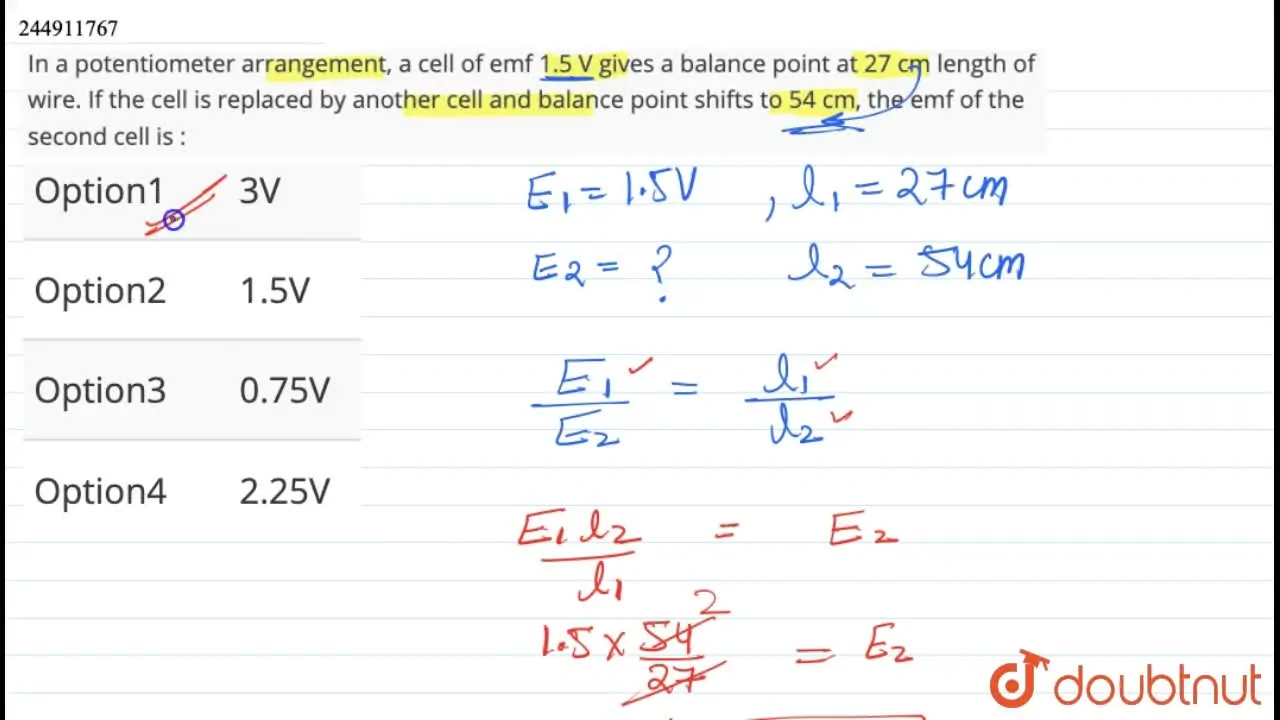 244911767
In a potentiometer arrangement, a cell of emf 1.5 V gives a balance point at 27 cm length of
wire. If the cell is replaced by another cell and balance point shifts to 54 cm, the emf of the
second cell is :
Option1 3V
Option2 1.5V
Option3 0.75V
Option4 2.25V
E1 = 1.5V , l1 = 27cm
E2 = ? l2 = 54cm
E1 = l1
E2 l2
E1 l2 = E2
l1
2
1.5 × 54 = E2
27
doubtnut